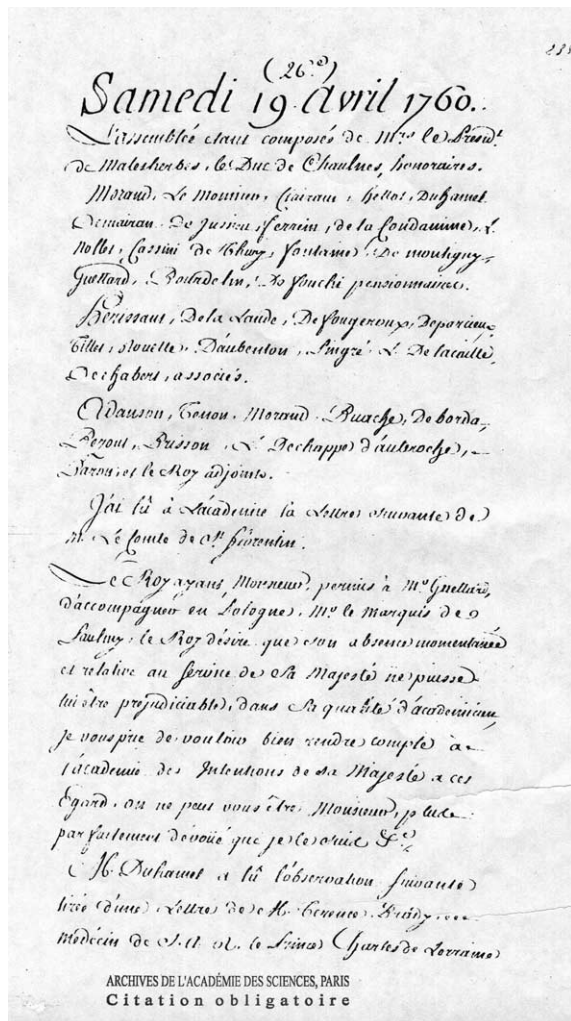 (26.e)
Samedi 19 Avril 1760.
L'assemblée étant composée de Mrs. le Présidt.
de Malesherbes, le Duc de Chaulnes, honoraires.
Morand, Le Monnier, Clairaut, hellot, Duhamel
Demairan, De Jussieu, ferrein, de la Condamine, L.
Nollet, Cassini de Thury, fontaine, De montigny,
Guettard, Bourdelin, De fouchi pensionnaires.
Hérissant, De la Lande, De fougeroux, Deparcieux
Tillet, Rouelle, Daubenton, Pingré, L. De lacaille,
De chabert, associés.
Adanson, Tenon, Morand, Buache, De borda,
Bezout, Brisson, L. De chappe d'auteroche,
Baron, et le Roy adjoints.
J'ai lû à L'académie la Lettre suivante de
M. Le Comte de St. florentin.
Le Roy ayant, Monsieur, permis à Mr. Guettard,
d'accompagner en Pologne, Mr. le marquis de
Paulmy, le Roy désire que son absence momentanée
et relative au service de Sa Majesté ne puisse
lui être préjudiciable, dans Sa qualité d'académicien,
je vous prie de vouloir bien rendre compte à
l'académie des Intentions de Sa Majesté a cet
Egard, on ne peut vous être Monsieur, plus
parfaitement dévoüé que je le suis &c.
M. Duhamel a lû l'observation suivante
tirée d'une Lettre de M. Terence Brady
médecin de S. A. R. le Prince Charles de Lorraine
ARCHIVES DE L'ACADÉMIE DES SCIENCES, PARIS
Citation obligatoire